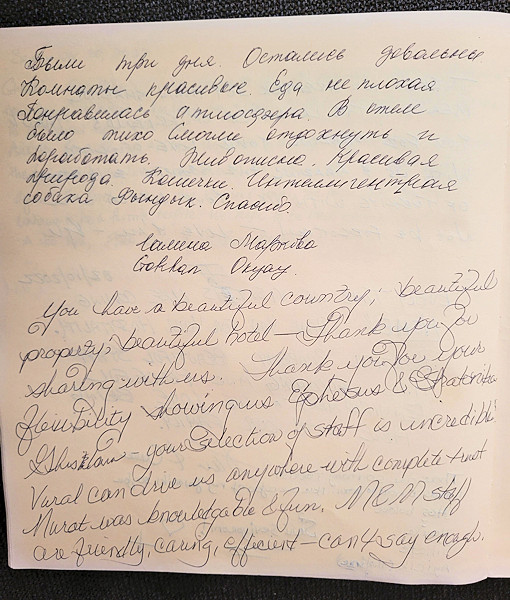 Были три дня. Остались довольны
Комнаты красивые. Еда не плохая
Понравилась атмосфера. В отеле
было тихо Смогли отдохнуть и
поработать. Живописно. Красивая
природа. Кошечки. Интеллигентная
собака Фындык. Спасибо.
Галина
Gokhan Okyay.
You have a beautiful country; beautiful
property; beautiful hotel — Thank you for
sharing with us. Thank you for your
flexibility showing us Ephesus &
- your selection of staff is incredible.
Vural can drive us anywhere with complete trust
Murat was knowledgable & fun. staff
are friendly, caring, efficient - can't say enough.